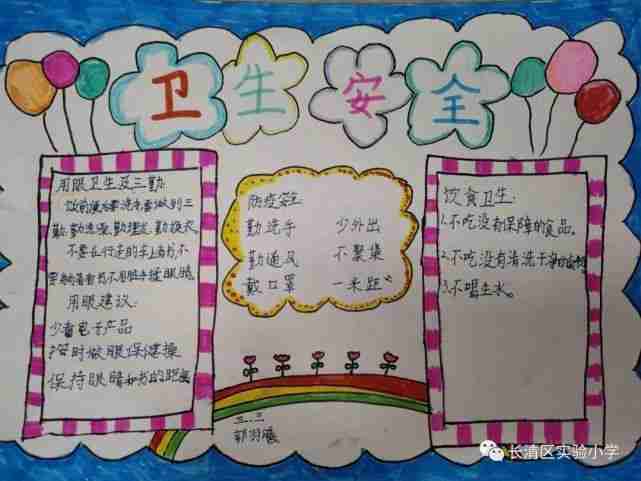 卫生安全
用眼卫生及三勤
饭前便后要洗手要做到三
勤:勤洗澡,勤理发,勤换衣。
不要在行走的车上看书不
要躺着看书不用脏手揉眼睛。
用眼建议:
少看电子产品
按时做眼保健操
保持眼睛和书的距离
防疫安全
勤洗手 少外出
勤通风 不聚集
戴口罩 一米距
饮食卫生:
1.不吃没有保障的食品。
2.不吃没有清洗干净的食物
3.不喝生水。
三.二
长清区实验小学